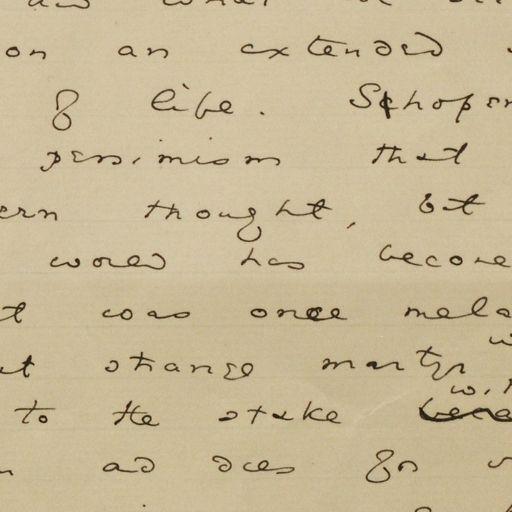 on an extended
of life. Schopen
pessimism that
ern thought, but
world has become
t was once mela
at strange martyr w
to the stake beca wit
and dies for